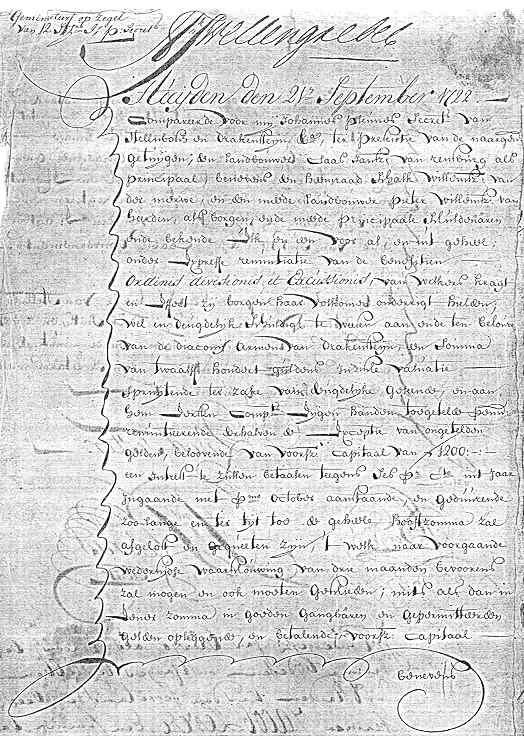 Gemeinschrift op zegel
van 12 St.
Huyden den 21e September 1722.
Compareerde voor mij Johannes Secret. van
Stellenbosch en Drakensteijn, ter presentie van de naergen.
getuijgen, den Landbouwer Claas van renburg als
principaal, benevens den heemraad Schalk Willemsz: van
der merwe, en den mede Landbouwer Pieter Willemsz van
heerden, als borgen, ende mede principaale schuldenaren,
ende bekende Elk en een voor al, en int geheel,
onder Expresse renuntiatie van de benefitien
Ordinis divisionis et Excussionis, van welkers kragt
en Effect zij borgen haar volkomen onderrigt hielden,
wel en deugdelijk schuldig te weesen aan ende ten behoeve
van de diaconij Armens van Drakensteijn, een Somma
van twaalff hondert guldens Indise valuatie
spruijtende ter zake van deugdelijke Geleende, en aan
hem Eersten Compt. Eijgen handen toegetelde penn:
renuntieerende derhalven de Exceptie van ongetelden
gelden, beloovende van voorsz: Capitaal van ƒ1200:-:-
een intrest te zullen betaalen teegens Ses pr. Cto. int Jaar
Ingaande met pmo. October aanstaande, en geduurende
zoo lange en ter tijt toe de geheele hooftzomma zal
afgelost en gequeeten zijn, 't welk naar voorgaande
wedersijdse waarschouwing van drie maanden bevoorens
zal mogen en ook moeten Geschieden, mits als dan in
Eener zomma in goeden Gangbaren en Gepermitteerden
gelden opleggende, en betalende, voorsz: Capitaal
benevens